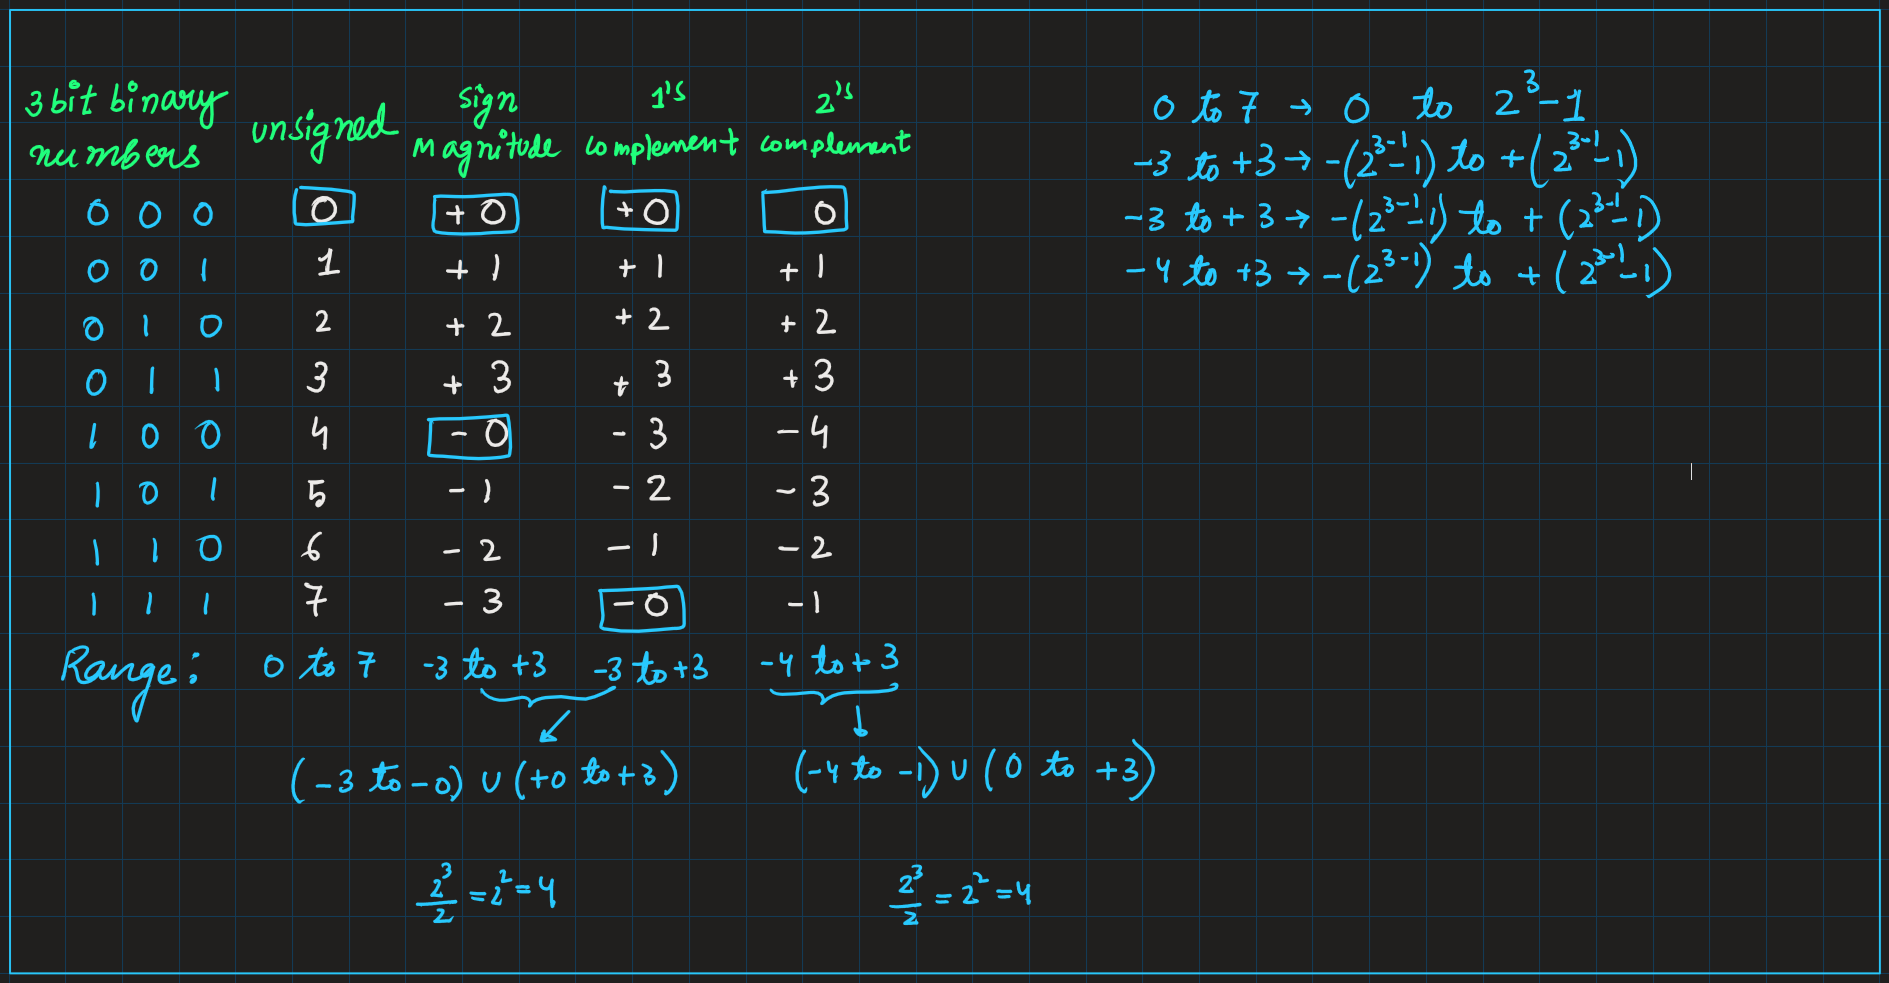 3 bit binary numbers unsigned sign magnitude 1's complement 2's complement
0 0 0 0 +0 +0 0
0 0 1 1 +1 +1 +1
0 1 0 2 +2 +2 +2
0 1 1 3 +3 +3 +3
1 0 0 4 -0 -3 -4
1 0 1 5 -1 -2 -3
1 1 0 6 -2 -1 -2
1 1 1 7 -3 -0 -1
Range: 0 to 7 -3 to +3 -3 to +3 -4 to +3
(-3 to -0) ∪ (+0 to +3) (-4 to -1) ∪ (0 to +3)
2³/2 = 2² = 4 2³/2 = 2² = 4
0 to 7 → 0 to 2³-1
-3 to +3 → -(2³⁻¹-1) to +(2³⁻¹-1)
-3 to +3 → -(2³⁻¹-1) to +(2³⁻¹-1)
-4 to +3 → -(2³⁻¹) to +(2³⁻¹-1)